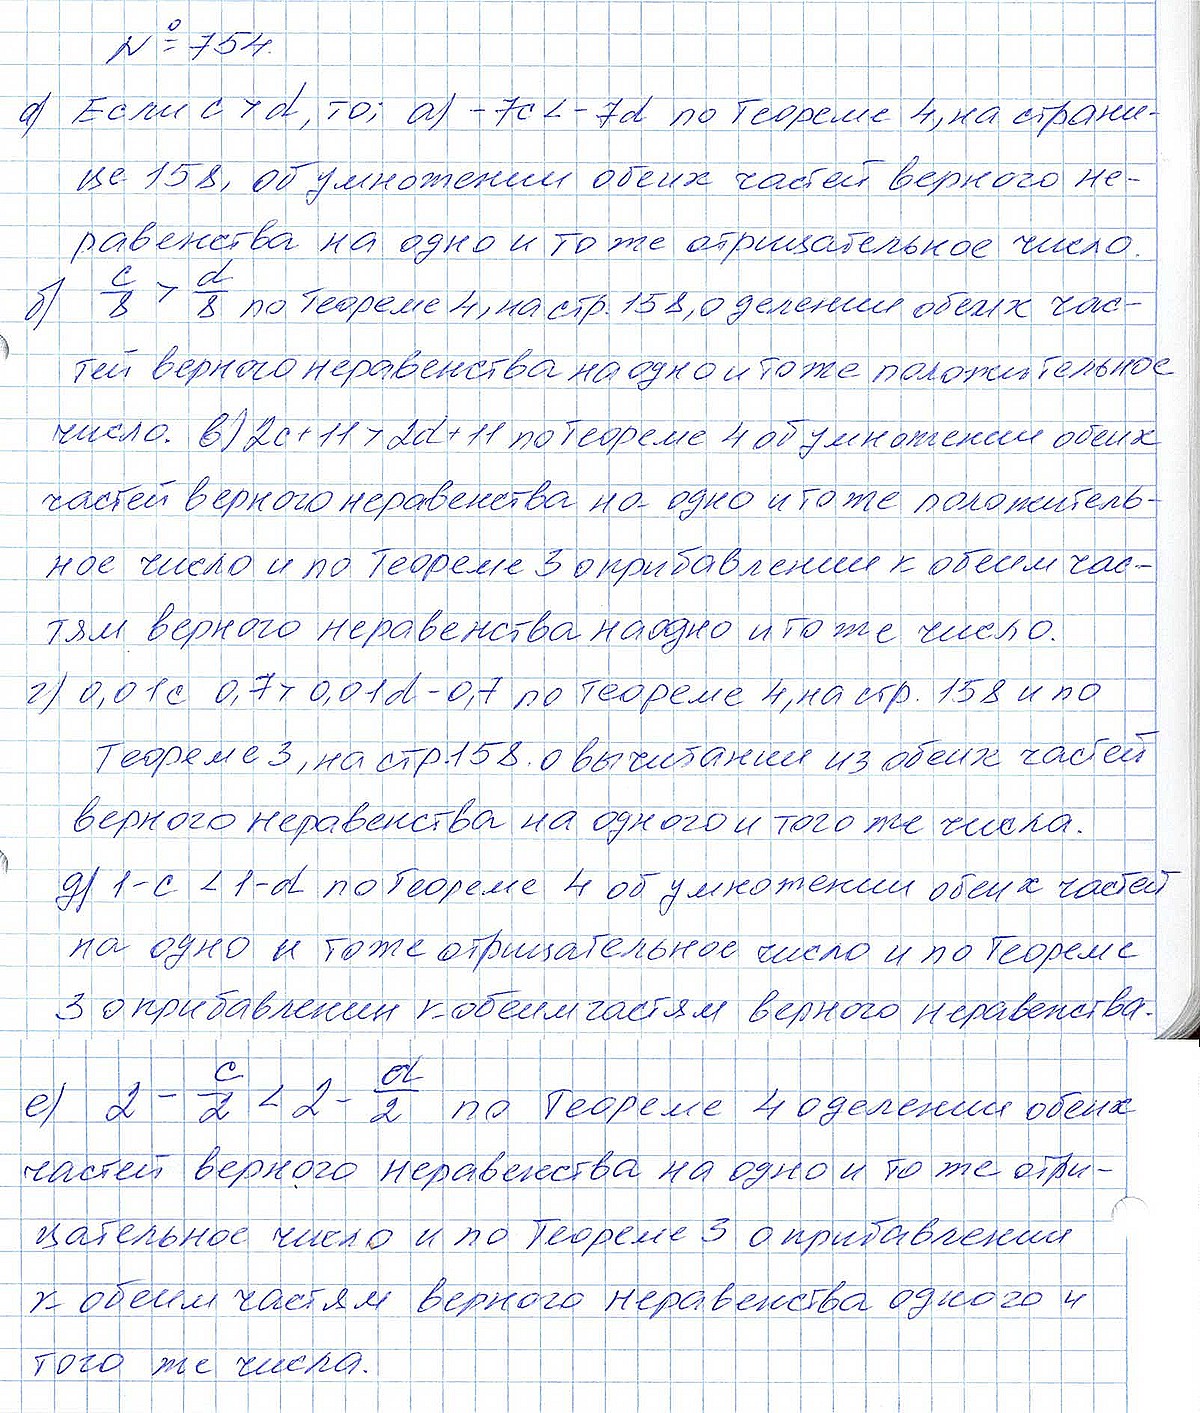 № 754.
а) Если c > d, то; а) -7c < -7d по Теореме 4, на страни-
це 158, об умножении обеих частей верного не-
равенства на одно и то же отрицательное число.
б) c/8 > d/8 по Теореме 4, на стр. 158, о делении обеих час-
тей верного неравенства на одно и то же положительное
число. в) 2c+11 > 2d+11 по Теореме 4 об умножении обеих
частей верного неравенства на одно и то же положитель-
ное число и по Теореме 3 о прибавлении к обеим час-
тям верного неравенства на одно и то же число.
г) 0,01c 0,7 > 0,01d - 0,7 по Теореме 4, на стр. 158 и по
Теореме 3, на стр. 158. о вычитании из обеих частей
верного неравенства на одного и того же числа.
д) 1-c < 1-d по Теореме 4 об умножении обеих частей
на одно и тоже отрицательное число и по Теореме
3 о прибавлении к обеим частям верного неравенства.
е) 2 - c/2 < 2 - d/2 по Теореме 4 о делении обеих
частей верного неравенства на одно и то же отри-
цательное число и по Теореме 3 о прибавлении
к обеим частям верного неравенства одного и
того же числа.